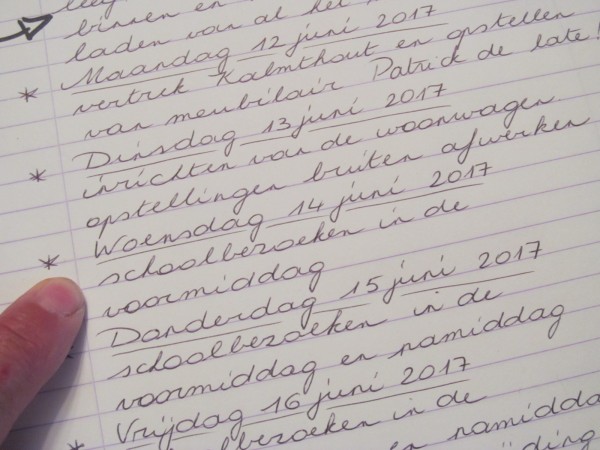 binnen en
laden van al het
* Maandag 12 juni 2017
vertrek Kalmthout en opstellen
van meubilair Patrick de late!
* Dinsdag 13 juni 2017
inrichten van de woonwagen
opstellingen buiten afwerken
* Woensdag 14 juni 2017
schoolbezoeken in de
voormiddag
Donderdag 15 juni 2017
schoolbezoeken in de
voormiddag en namiddag
* Vrijdag 16 juni 2017
in de
en